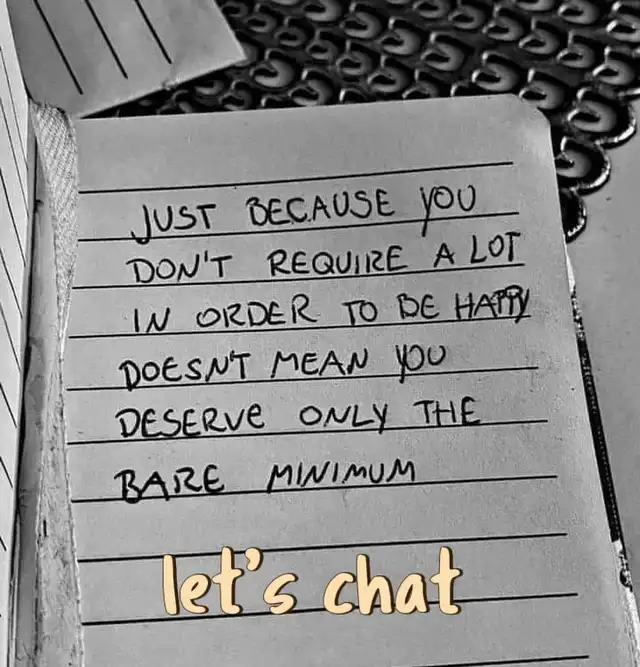 JUST BECAUSE YOU
DON'T REQUIRE A LOT
IN ORDER TO BE HAPPY
DOESN'T MEAN YOU
DESERVE ONLY THE
BARE MINIMUM
let's chat